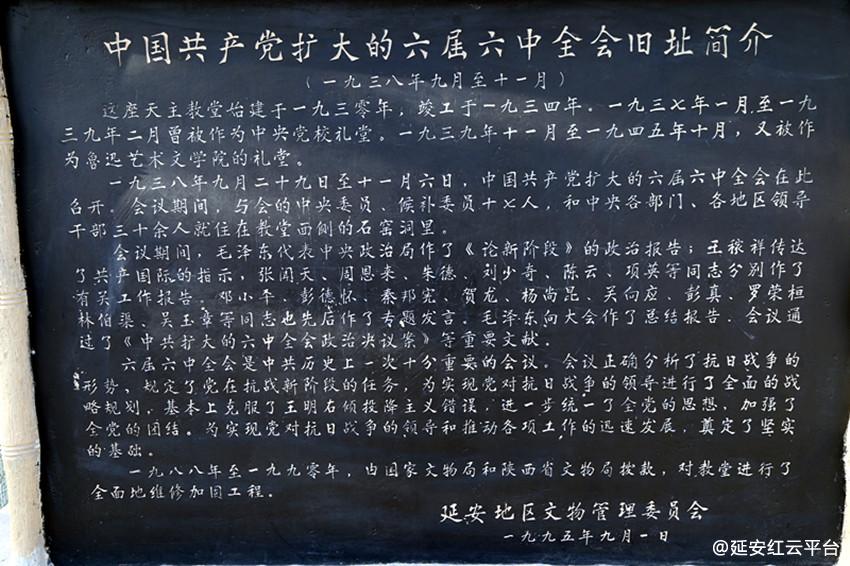 中国共产党扩大的六届六中全会旧址简介
（一九三八年九月至十一月）
这座天主教堂始建于一九三零年，竣工于一九三四年。一九三七年一月至一九
三九年二月曾被作为中央党校礼堂。一九三九年十一月至一九四五年十月，又被作
为鲁迅艺术文学院的礼堂。
一九三八年九月二十九日至十一月六日，中国共产党扩大的六届六中全会在此
召开。会议期间，与会的中央委员、候补委员十七人，和中央各部门、各地区领导
干部三十余人就住在教堂面侧的石窑洞里。
会议期间，毛泽东代表中央政治局作了《论新阶段》的政治报告；王稼祥传达
了共产国际的指示，张闻天、周恩来、朱德、刘少奇、陈云、项英等同志分别作了
有关工作报告。邓小平、彭德怀、秦邦宪、贺龙、杨尚昆、关向应、彭真、罗荣桓
林伯渠、吴玉章等同志也先后作了专题发言。毛泽东向大会作了总结报告。会议通
过了《中共扩大的六中全会政治决议案》等重要文献。
六届六中全会是中共历史上一次十分重要的会议。会议正确分析了抗日战争的
形势，规定了党在抗战新阶段的任务，为实现党对抗日战争的领导进行了全面的战
略规划，基本上克服了王明右倾投降主义错误，进一步统一了全党的思想、加强了
全党的团结。为实现党对抗日战争的领导和推动各项工作的迅速发展，奠定了坚实
的基础。
一九八八年至一九九零年，由国家文物局和陕西省文物局拨款，对教堂进行了
全面地维修加固工程。
延安地区文物管理委员会
一九九五年九月一日
@延安红云平台